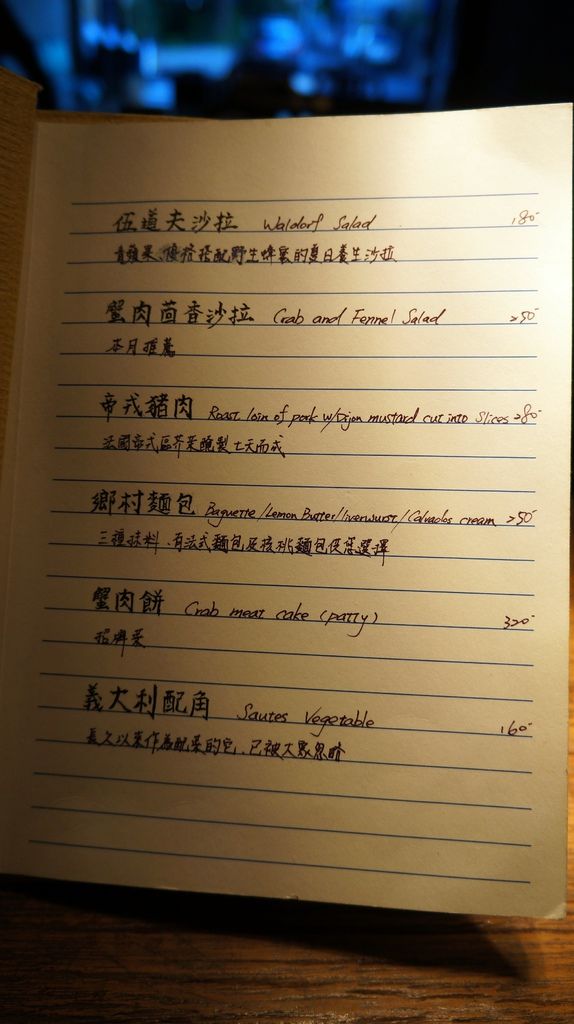 伍道夫沙拉 Waldorf Salad 180-
青蘋果、優格搭配野生蜂蜜的夏日養生沙拉
蟹肉茴香沙拉 Crab and Fennel Salad 250-
本月推薦
帝戎豬肉 Roast loin of pork w/Dijon mustard cut into Slices 280-
法國帝戎區芥茉醃製七天而成
鄉村麵包 Baguette/Lemon Butter/liverwurst/Calvados cream 250-
三種抹料、有法式麵包及核桃麵包供您選擇
蟹肉餅 Crab meat cake (patty) 320-
招牌菜
義大利配角 Sautes Vegetable 160-
長久以來作為配菜的它、已被大眾忽略